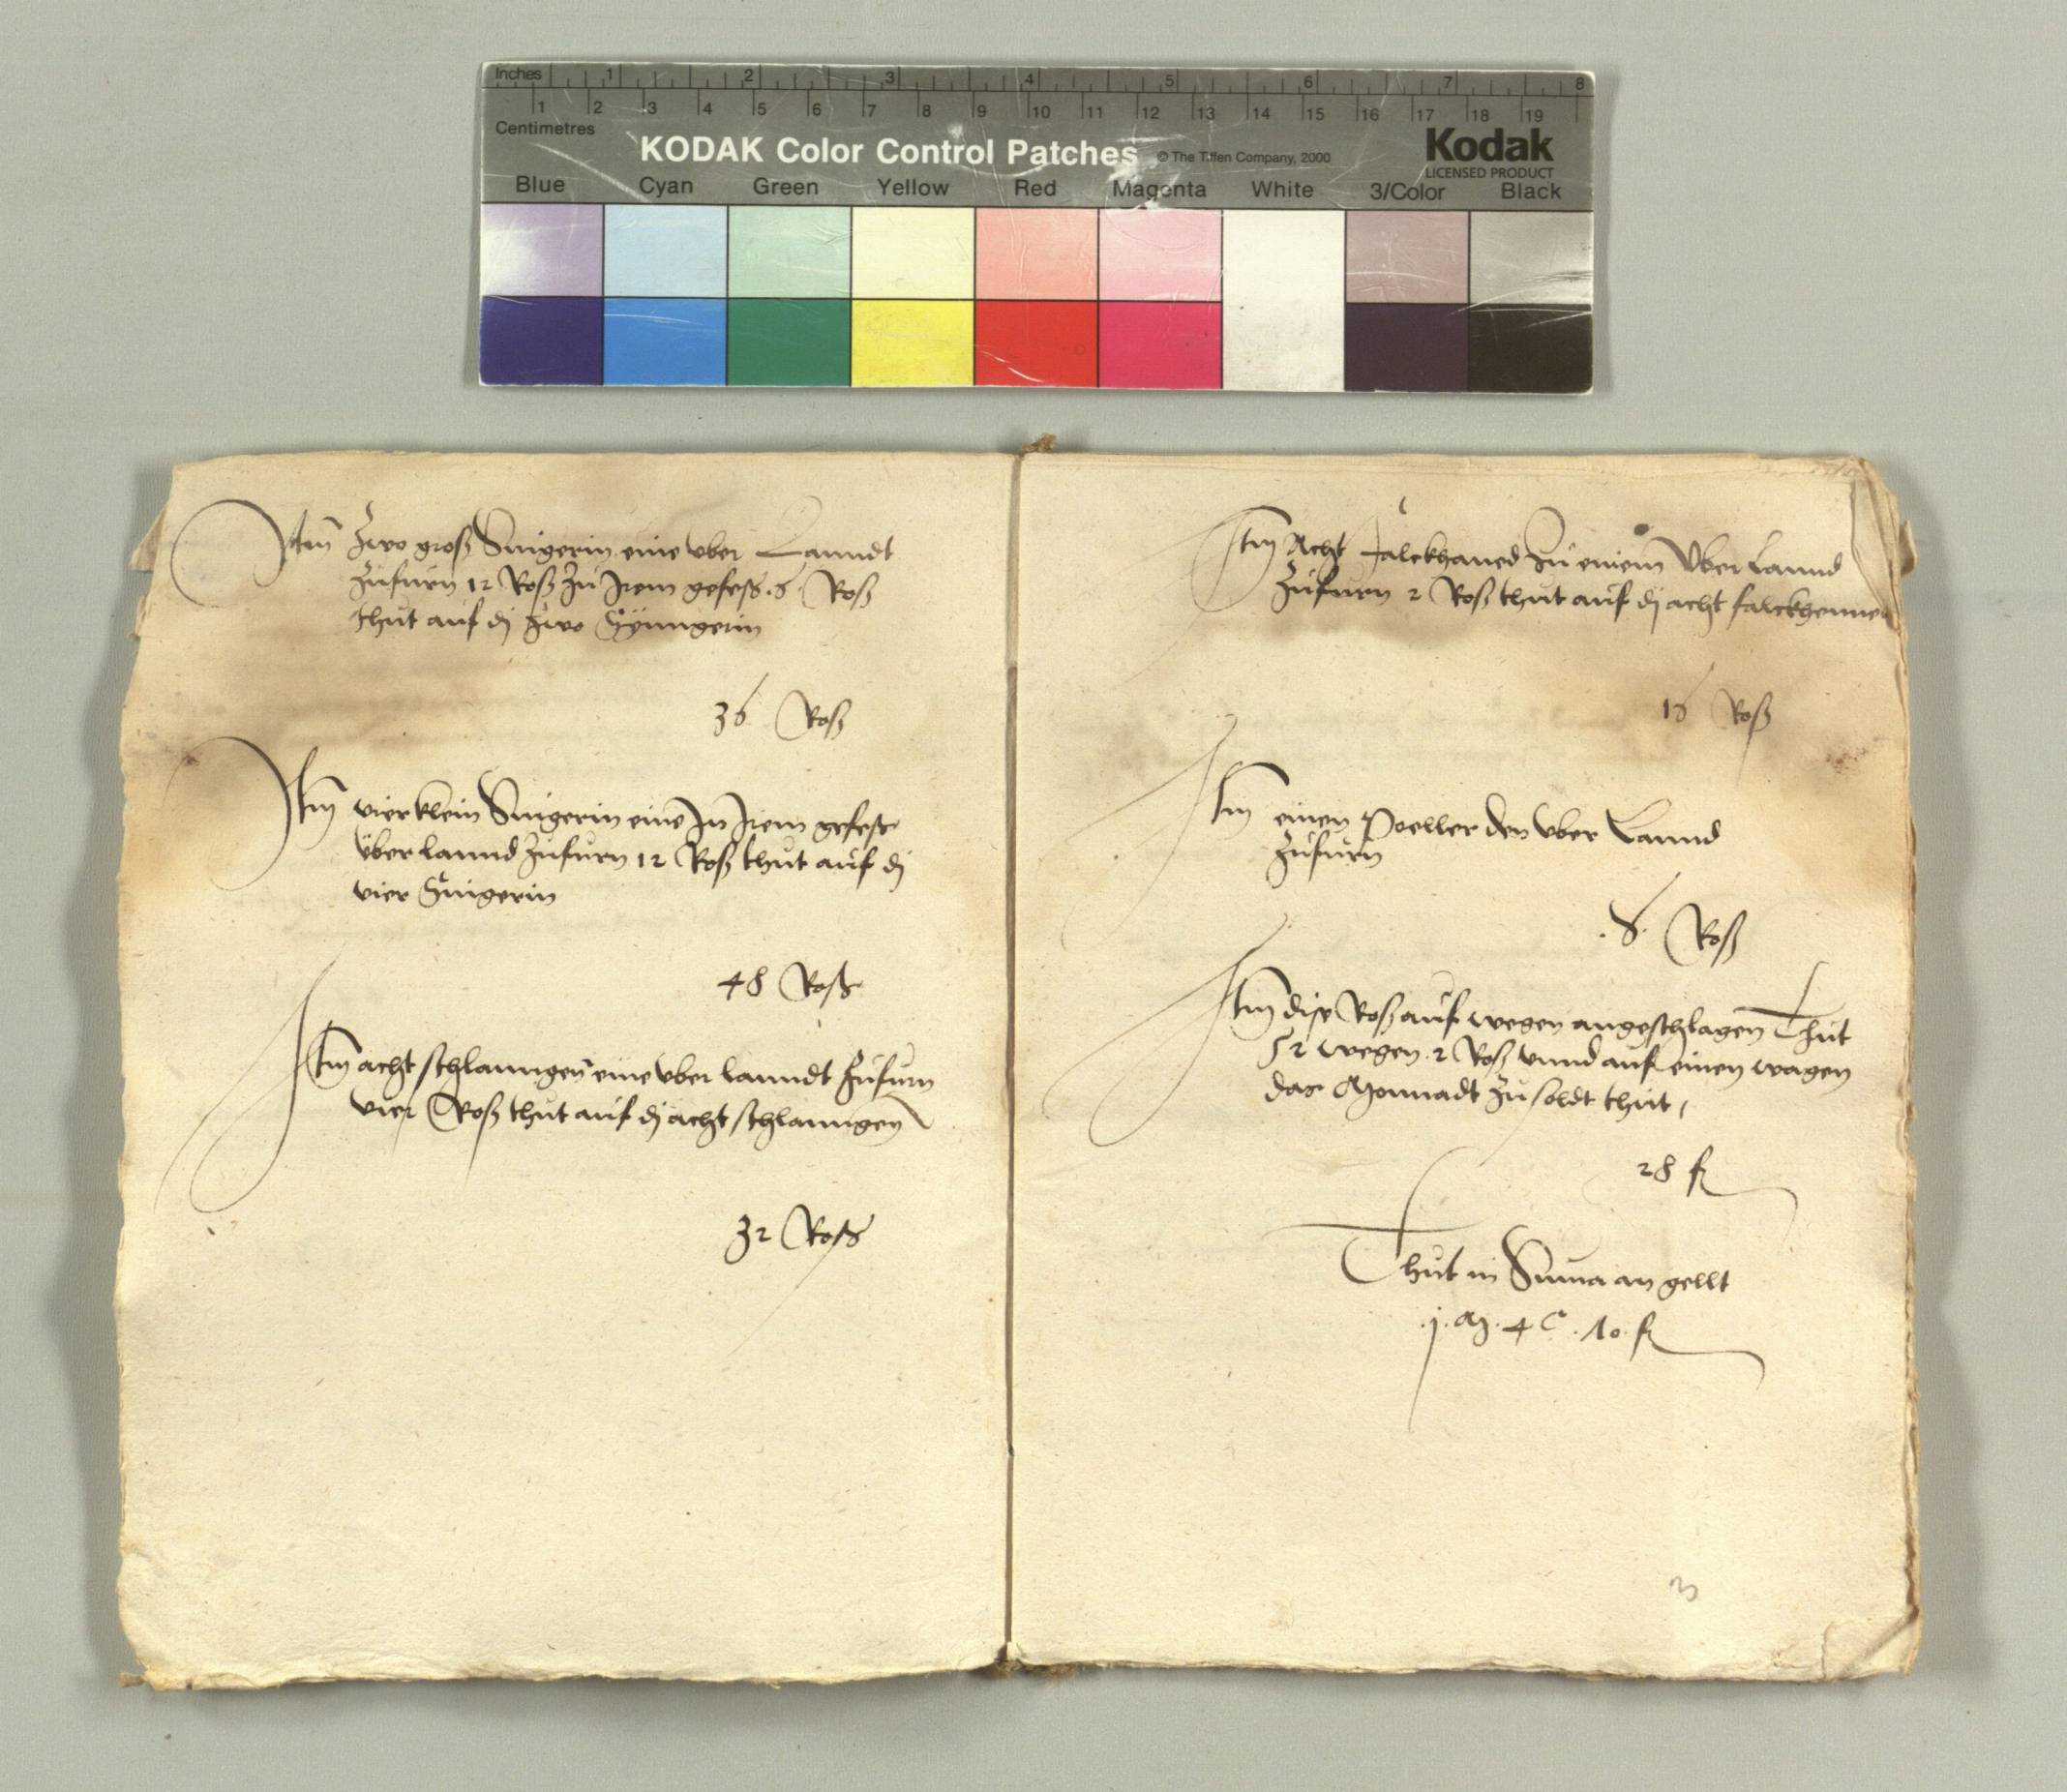 Inches 1 2 3 4 5 6 7 8
1 2 3 4 5 6 7 8 9 10 11 12 13 14 15 16 17 18 19
Centimetres
KODAK Color Control Patches © The Tiffen Company, 2000 Kodak
LICENSED PRODUCT
Blue Cyan Green Yellow Red Magenta White 3/Color Black
Itm̄ Zwo groß Singerin eine vber Lanndt
Zufurn 12 Roß Zu Irem gefeß .6. Roß
thut auf dj Zwo Synngerin
36 Roß
Itm vier klein Singerin eine In Irem gefeß
vber lannd Zufurn 12 Roß thut auf dj
vier Singerin
48 Roß
Itm acht schlanngen eine vber lanndt Zufurn
vier Roß thut auf dj acht schlanngen
32 Roß
Itm Acht Falckhaned Zu einem Vber Lannd
Zufurn 2 Roß thut auf dj acht falckhennet
16 Roß
Itm einen Poeller den vber Lannd
Zufurn
.6. Roß
Itm dise Roß auf wegen angeschlagen Thut
52 wegen .2 Roß vnnd auf einen wagen
das Monnadt Zu soldt thut,
28 fl
Thut in Suma an gellt
.j. M. 4 C . 10. fl
3